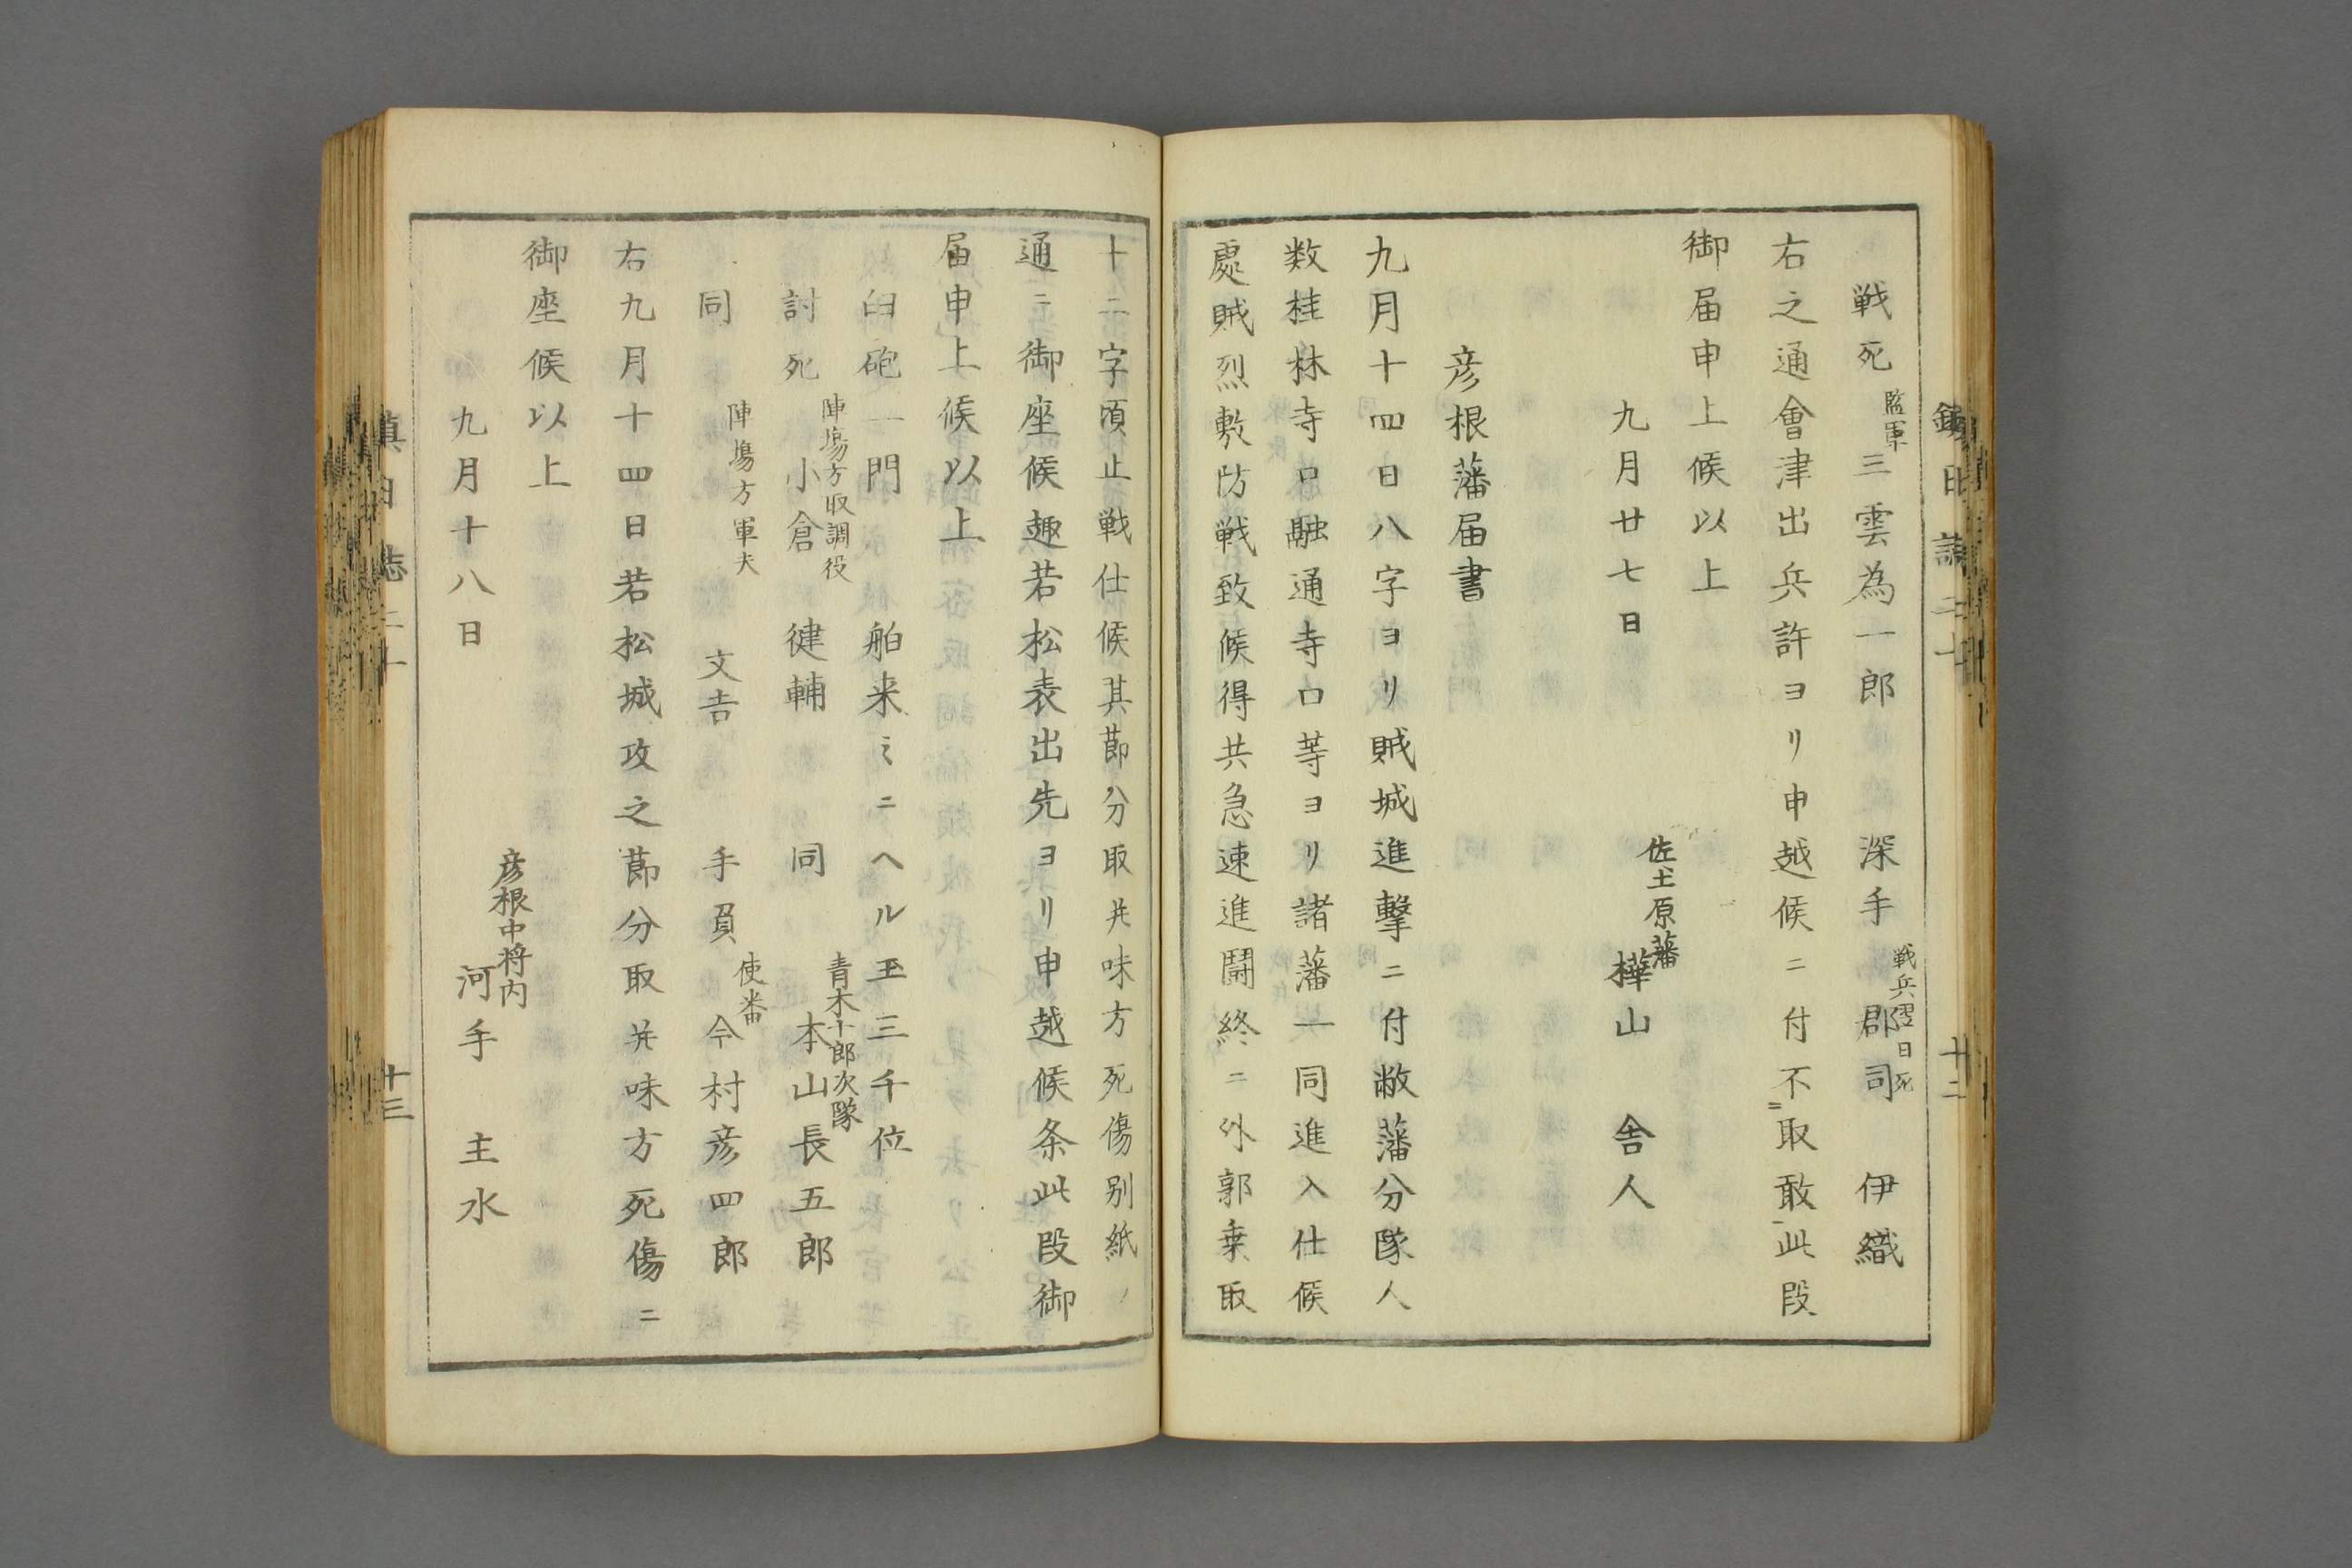 戦死 監軍 三雲為一郎 深手 戦兵翌日死 郡司 伊織
右之通會津出兵許ヨリ申越候ニ付不取敢此段
御届申上候以上
九月廿七日
佐土原藩
樺山 舎人
彦根藩届書
九月十四日八字ヨリ賊城進撃ニ付敝藩分隊人
数桂林寺口融通寺口等ヨリ諸藩一同進入仕候
處賊烈敷防戦致候得共急速進闘終ニ外郭乗取
十二字頃止戦仕候其節分取幷味方死傷別紙ノ
通ニ御座候趣若松表出先ヨリ申越候条此段御
届申上候以上
臼砲一門 舶来ミニヘル玉三千位
討死 陣場方取調役 小倉 健輔 同 青木十郎次隊 本山長五郎
同 陣場方軍夫 文吉 手負 使番 今村彦四郎
右九月十四日若松城攻之節分取幷味方死傷ニ
御座候以上
九月十八日
彦根中将内
河手 主水
鎮日誌二十
十三
十二